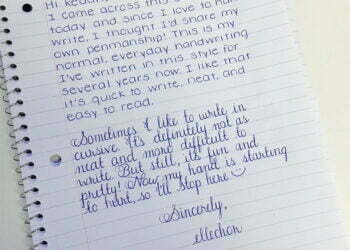 Hi Reddit
I came across this
today and since I love to ha
write, I thought I'd share my
own penmanship! This is my
normal, everyday handwriting
I've written in this style for
several years now. I like that
it's quick to write, neat, and
easy to read.
Sometimes I like to write in
cursive. It's definitely not as
neat and more difficult to
write. But still, it's fun and
pretty! Now my hand is starting
to hurt, so I'll stop here
Sincerely,